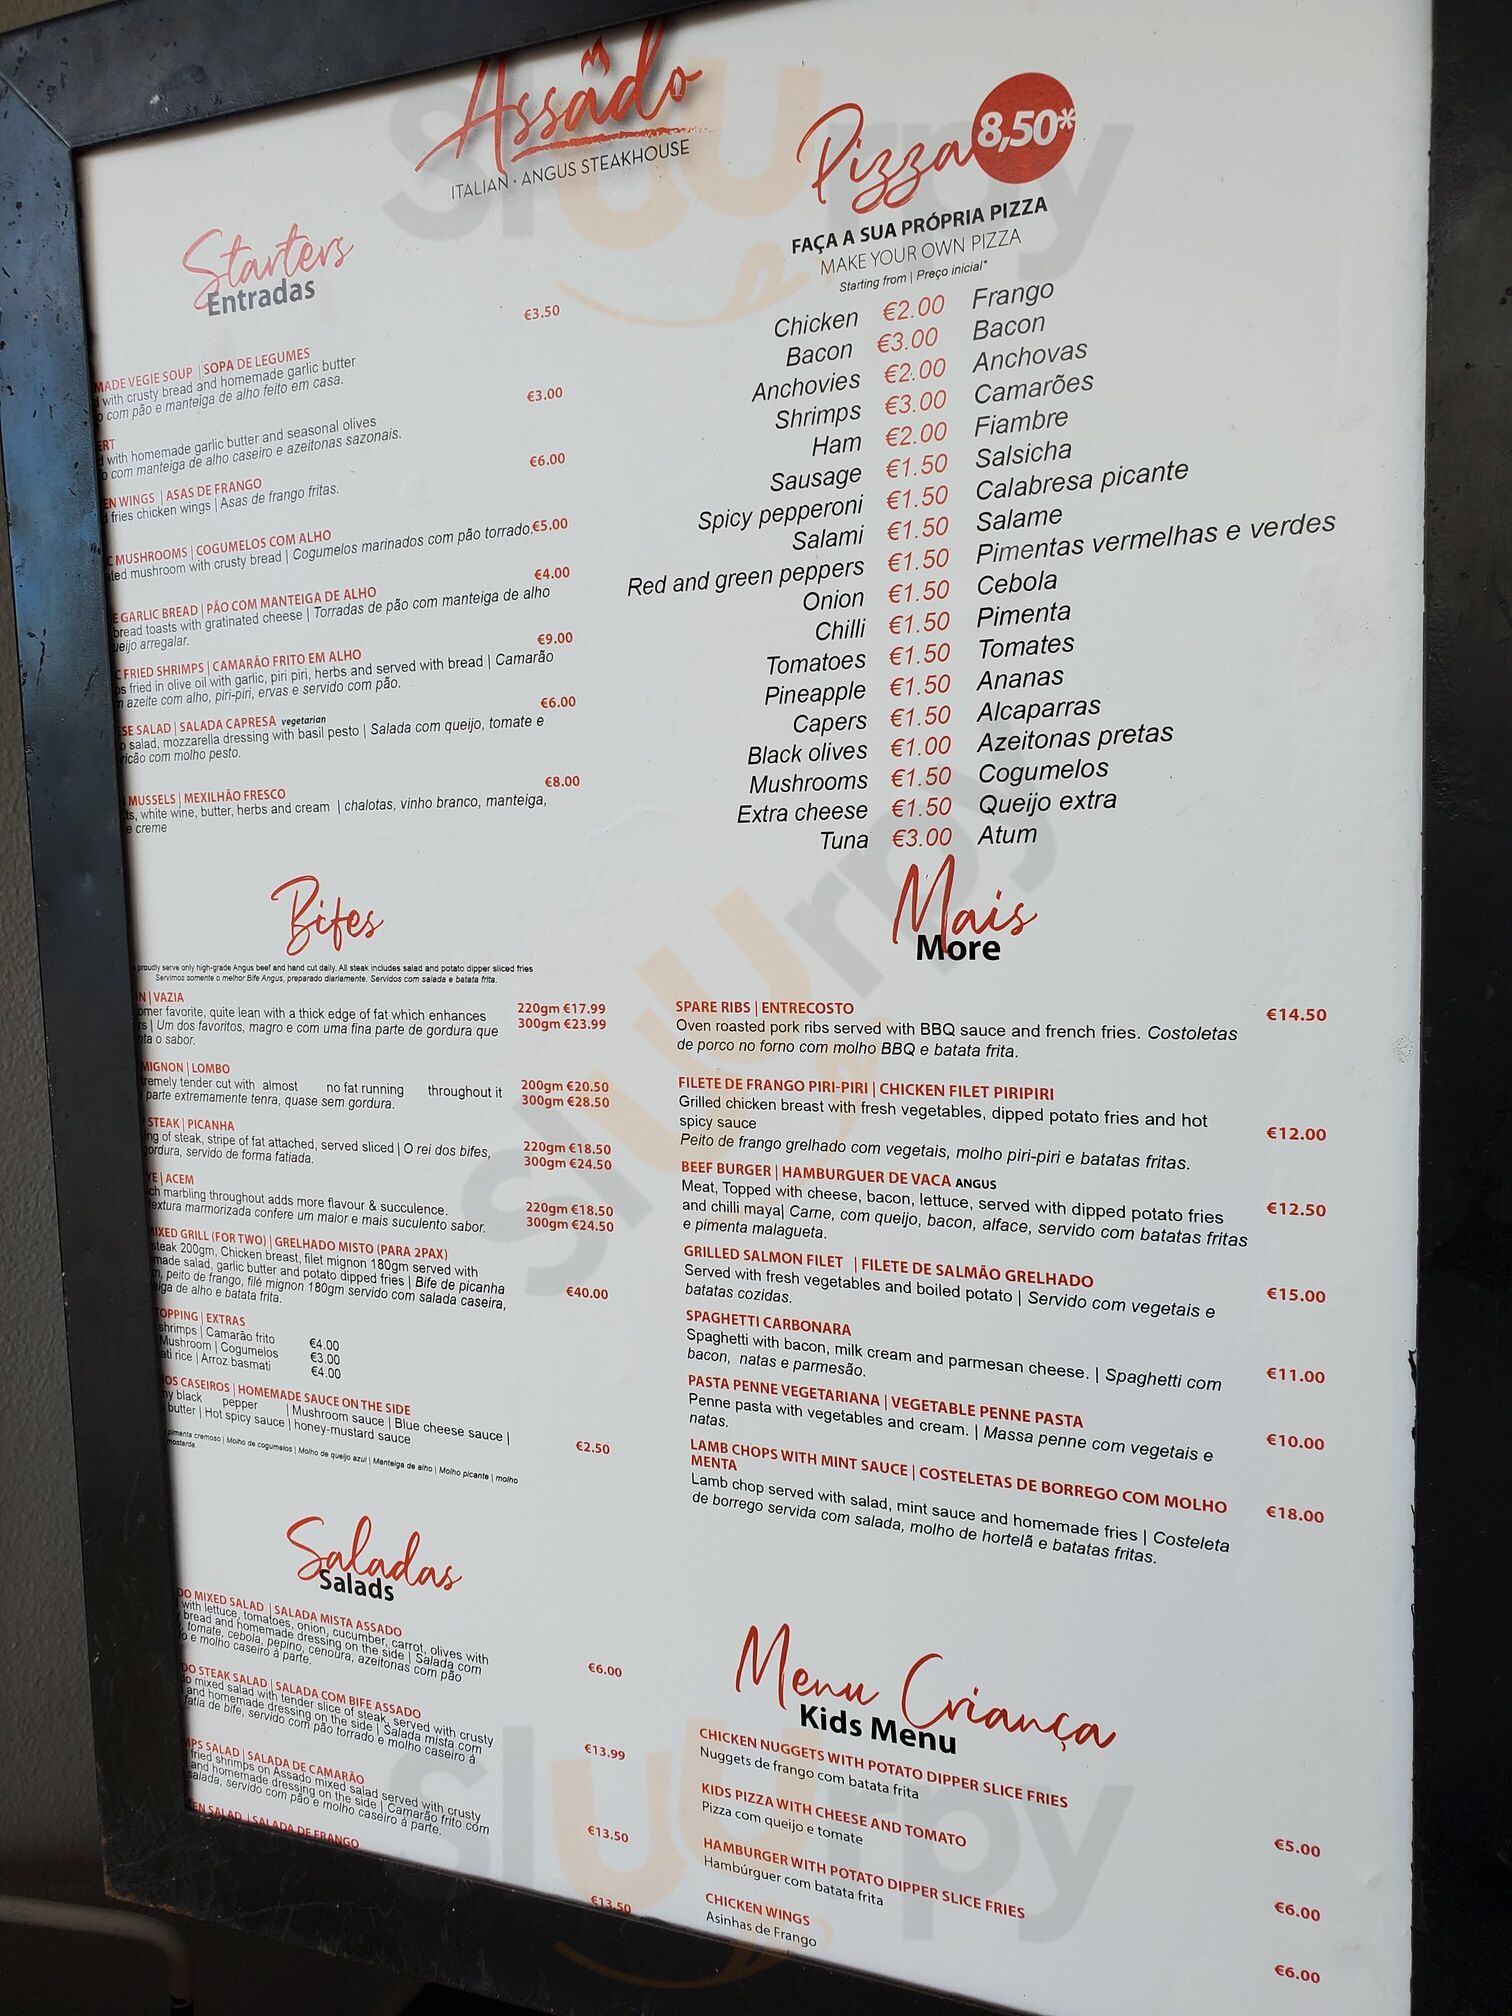 Assado
ITALIAN · ANGUS STEAKHOUSE
Starters
Entradas
€3.50
MADE VEGIE SOUP | SOPA DE LEGUMES
with crusty bread and homemade garlic butter
com pão e manteiga de alho feito em casa.
€3.00
with homemade garlic butter and seasonal olives
com manteiga de alho caseiro e azeitonas sazonais.
€6.00
WINGS | ASAS DE FRANGO
fries chicken wings | Asas de frango fritas.
MUSHROOMS | COGUMELOS COM ALHO
mushroom with crusty bread | Cogumelos marinados com pão torrado. €5.00
€4.00
GARLIC BREAD | PÃO COM MANTEIGA DE ALHO
bread toasts with gratinated cheese | Torradas de pão com manteiga de alho
arregalar.
€9.00
FRIED SHRIMPS | CAMARÃO FRITO EM ALHO
fried in olive oil with garlic, piri piri, herbs and served with bread | Camarão
azeite com alho, piri-piri, ervas e servido com pão.
€6.00
SALAD | SALADA CAPRESA vegetarian
salad, mozzarella dressing with basil pesto | Salada com queijo, tomate e
com molho pesto.
€8.00
MUSSELS | MEXILHÃO FRESCO
white wine, butter, herbs and cream | chalotas, vinho branco, manteiga,
e creme
Bifes
proudly serve only high-grade Angus beef and hand cut daily. All steak includes salad and potato dipper sliced fries
Servimos somente o melhor Bife Angus, preparado diariamente. Servidos com salada e batata frita.
| VAZIA
favorite, quite lean with a thick edge of fat which enhances 220gm €17.99
| Um dos favoritos, magro e com uma fina parte de gordura que 300gm €23.99
o sabor.
MIGNON | LOMBO
tender cut with almost no fat running throughout it 200gm €20.50
parte extremamente tenra, quase sem gordura. 300gm €28.50
STEAK | PICANHA
of steak, stripe of fat attached, served sliced | O rei dos bifes, 220gm €18.50
gordura, servido de forma fatiada. 300gm €24.50
| ACEM
marbling throughout adds more flavour & succulence. 220gm €18.50
textura marmorizada confere um maior e mais suculento sabor. 300gm €24.50
MIXED GRILL (FOR TWO) | GRELHADO MISTO (PARA 2PAX)
steak 200gm, Chicken breast, filet mignon 180gm served with
salad, garlic butter and potato dipped fries | Bife de picanha
peito de frango, filé mignon 180gm servido com salada caseira, €40.00
de alho e batata frita.
TOPPING | EXTRAS
shrimps | Camarão frito €4.00
Mushroom | Cogumelos €3.00
rice | Arroz basmati €4.00
CASEIROS | HOMEMADE SAUCE ON THE SIDE
black pepper | Mushroom sauce | Blue cheese sauce |
butter | Hot spicy sauce | honey-mustard sauce €2.50
pimenta cremoso | Molho de cogumelos | Molho de queijo azul | Manteiga de alho | Molho picante | molho
mostarda
Saladas
Salads
MIXED SALAD | SALADA MISTA ASSADO
with lettuce, tomatoes, onion, cucumber, carrot, olives with
bread and homemade dressing on the side | Salada com
tomate, cebola, pepino, cenoura, azeitonas com pão €6.00
e molho caseiro à parte.
STEAK SALAD | SALADA COM BIFE ASSADO
mixed salad with tender slice of steak, served with crusty
and homemade dressing on the side | Salada mista com
fatia de bife, servido com pão torrado e molho caseiro à €13.99
SALAD | SALADA DE CAMARÃO
fried shrimps on Assado mixed salad served with crusty
and homemade dressing on the side | Camarão frito com
salada, servido com pão e molho caseiro à parte. €13.50
SALAD | SALADA DE FRANGO
€13.50
Pizza 8,50*
FAÇA A SUA PRÓPRIA PIZZA
MAKE YOUR OWN PIZZA
Starting from | Preço inicial*
Chicken €2.00 Frango
Bacon €3.00 Bacon
Anchovies €2.00 Anchovas
Shrimps €3.00 Camarões
Ham €2.00 Fiambre
Sausage €1.50 Salsicha
Spicy pepperoni €1.50 Calabresa picante
Salami €1.50 Salame
Red and green peppers €1.50 Pimentas vermelhas e verdes
Onion €1.50 Cebola
Chilli €1.50 Pimenta
Tomatoes €1.50 Tomates
Pineapple €1.50 Ananas
Capers €1.50 Alcaparras
Black olives €1.00 Azeitonas pretas
Mushrooms €1.50 Cogumelos
Extra cheese €1.50 Queijo extra
Tuna €3.00 Atum
Mais
More
SPARE RIBS | ENTRECOSTO €14.50
Oven roasted pork ribs served with BBQ sauce and french fries. Costoletas
de porco no forno com molho BBQ e batata frita.
FILETE DE FRANGO PIRI-PIRI | CHICKEN FILET PIRIPIRI
Grilled chicken breast with fresh vegetables, dipped potato fries and hot
spicy sauce €12.00
Peito de frango grelhado com vegetais, molho piri-piri e batatas fritas.
BEEF BURGER | HAMBURGUER DE VACA ANGUS
Meat, Topped with cheese, bacon, lettuce, served with dipped potato fries €12.50
and chilli maya| Carne, com queijo, bacon, alface, servido com batatas fritas
e pimenta malagueta.
GRILLED SALMON FILET | FILETE DE SALMÃO GRELHADO
Served with fresh vegetables and boiled potato | Servido com vegetais e €15.00
batatas cozidas.
SPAGHETTI CARBONARA
Spaghetti with bacon, milk cream and parmesan cheese. | Spaghetti com €11.00
bacon, natas e parmesão.
PASTA PENNE VEGETARIANA | VEGETABLE PENNE PASTA
Penne pasta with vegetables and cream. | Massa penne com vegetais e €10.00
natas.
LAMB CHOPS WITH MINT SAUCE | COSTELETAS DE BORREGO COM MOLHO
MENTA €18.00
Lamb chop served with salad, mint sauce and homemade fries | Costeleta
de borrego servida com salada, molho de hortelã e batatas fritas.
Menu Criança
Kids Menu
CHICKEN NUGGETS WITH POTATO DIPPER SLICE FRIES
Nuggets de frango com batata frita €5.00
KIDS PIZZA WITH CHEESE AND TOMATO
Pizza com queijo e tomate €6.00
HAMBURGER WITH POTATO DIPPER SLICE FRIES
Hambúrguer com batata frita €6.00
CHICKEN WINGS
Asinhas de Frango
Sluurpy
Sluurpy
Sluurpy